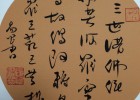 三世諸佛依
般若波羅蜜
多故得阿耨多
羅三藐三菩提